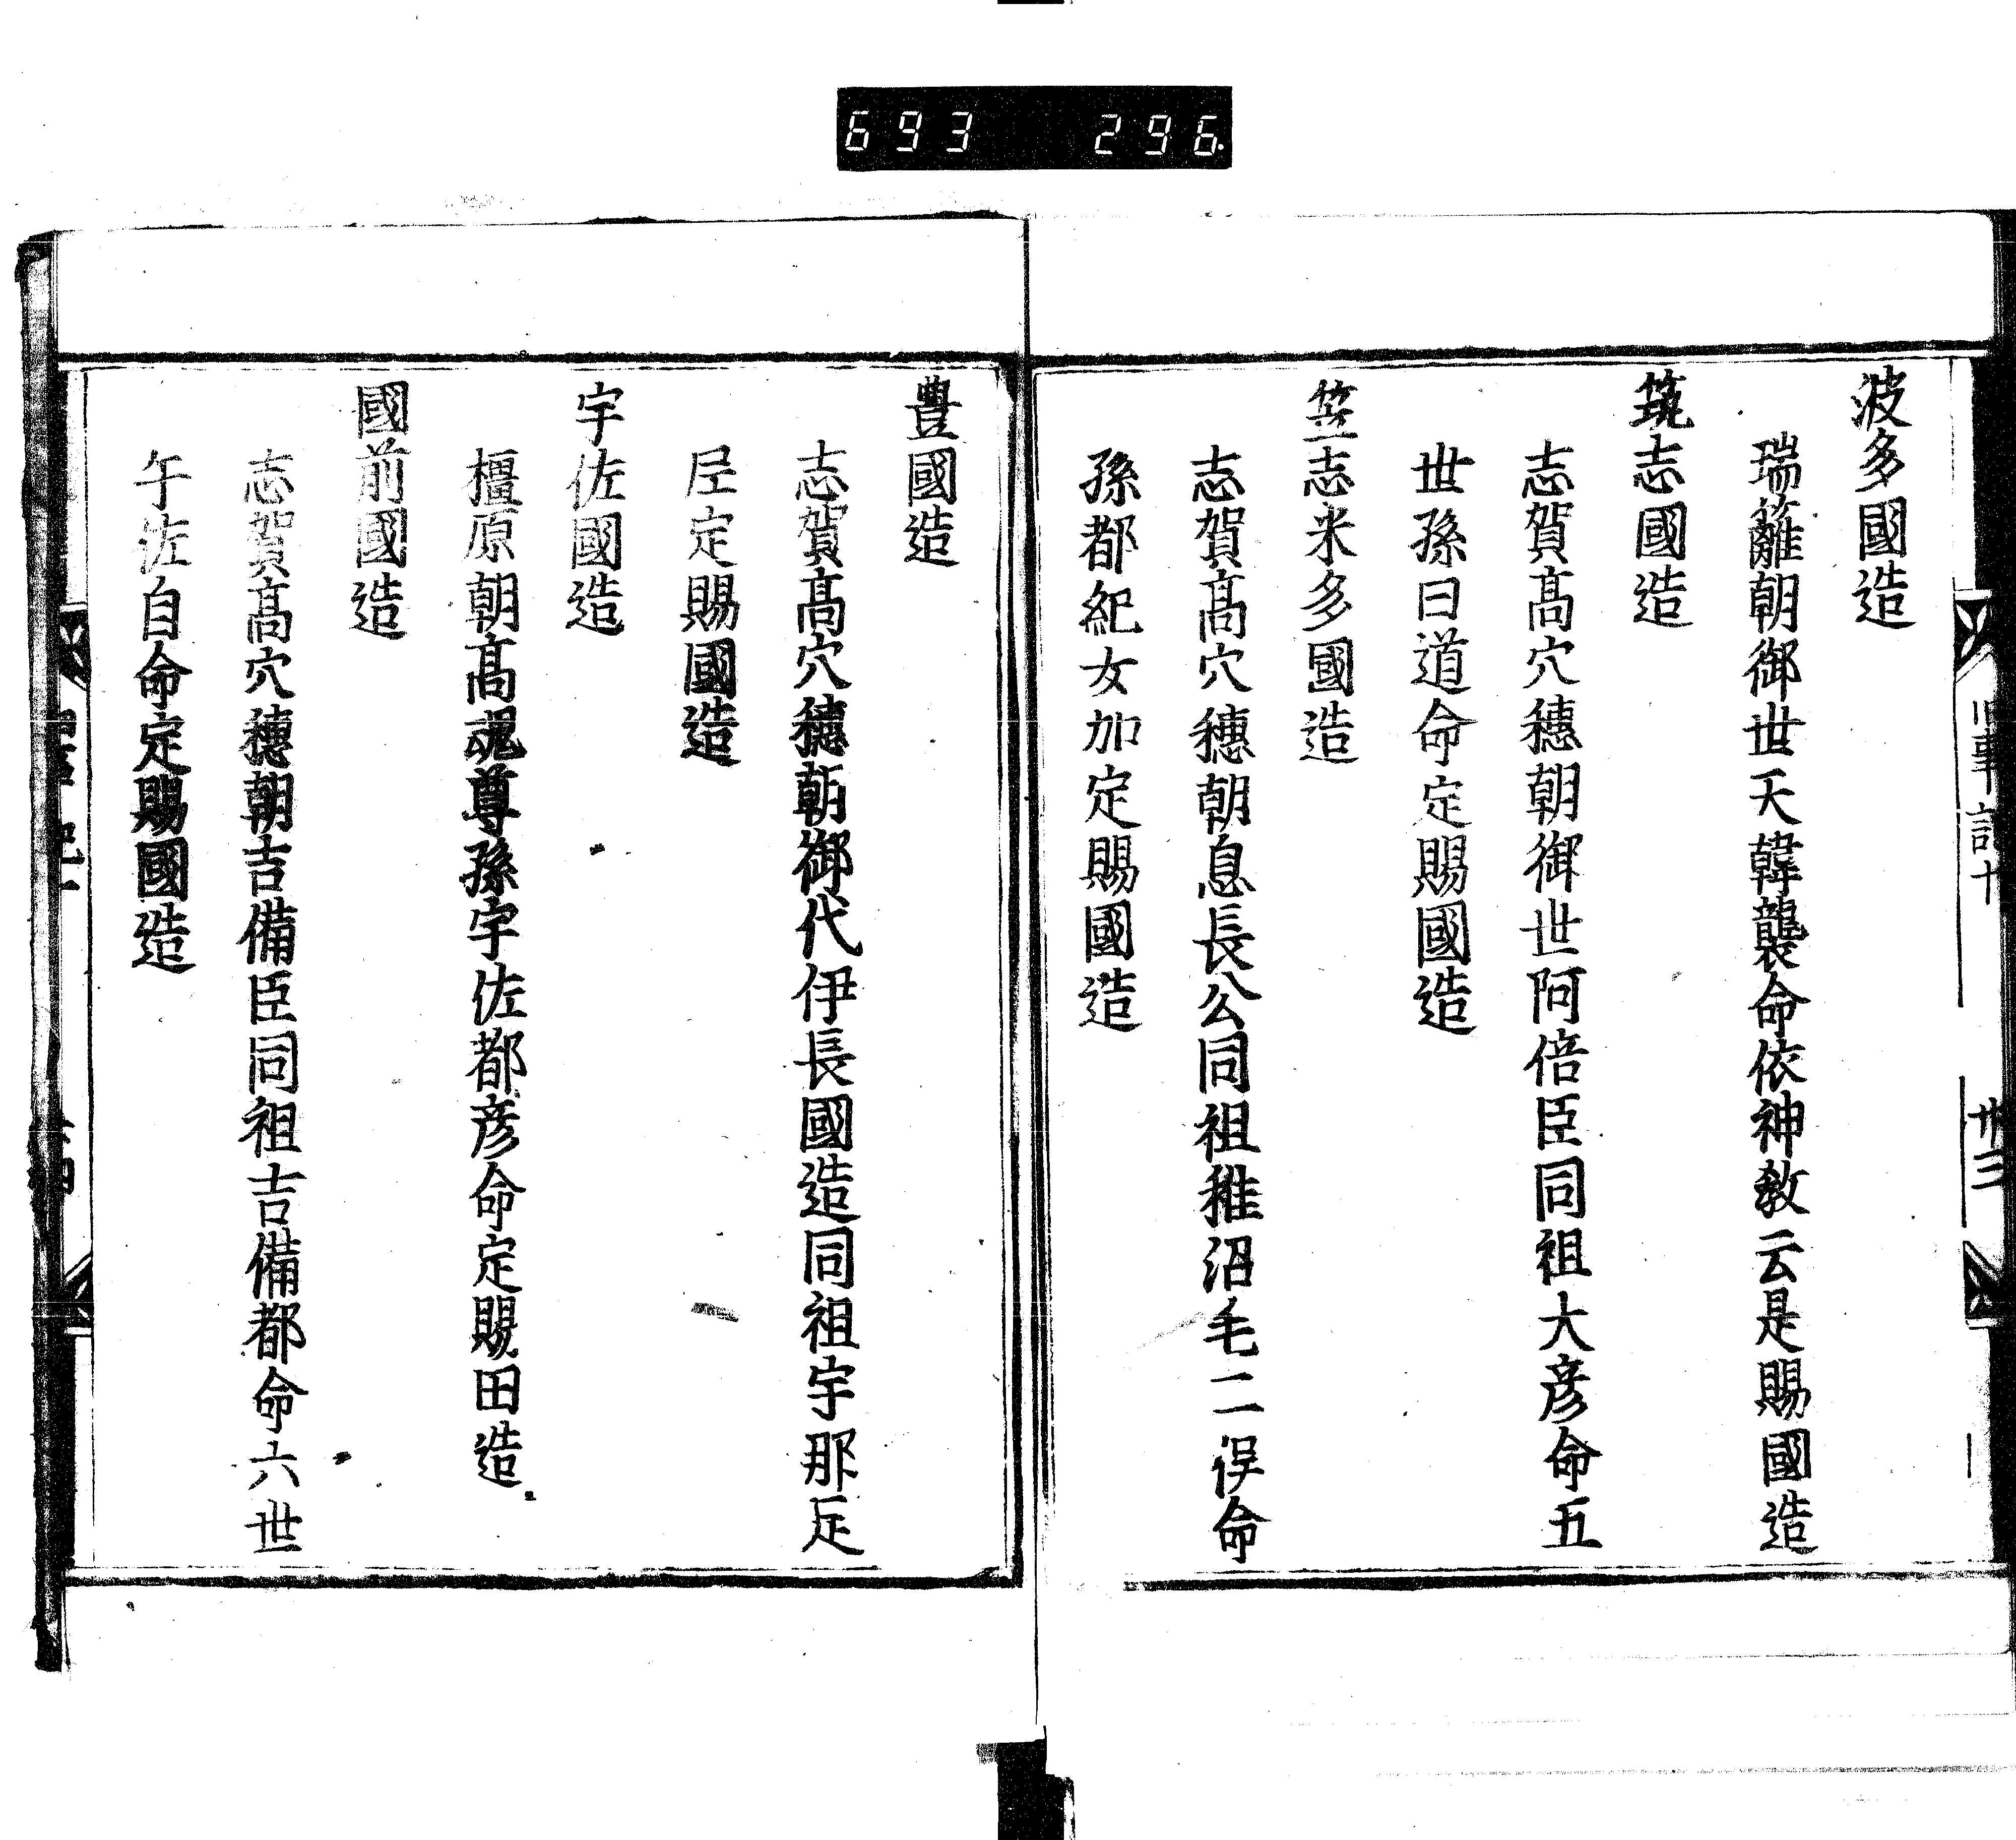 693 296.
旧事記十 卅三
波多國造
瑞籬朝御世天韓襲命依神敎云是賜國造
筑志國造
志賀髙穴穗朝御世阿倍臣同祖大彦命五
世孫日道命定賜國造
笠志米多國造
志賀髙穴穗朝息長公同祖稚沼毛二俣命
孫都紀女加定賜國造
豊國造
志賀髙穴穗朝御代伊長國造同祖宇那足
尼定賜國造
宇佐國造
橿原朝髙魂尊孫宇佐都彦命定賜田造
國前國造
志賀髙穴穗朝吉備臣同祖吉備都命六世
午佐自命定賜國造